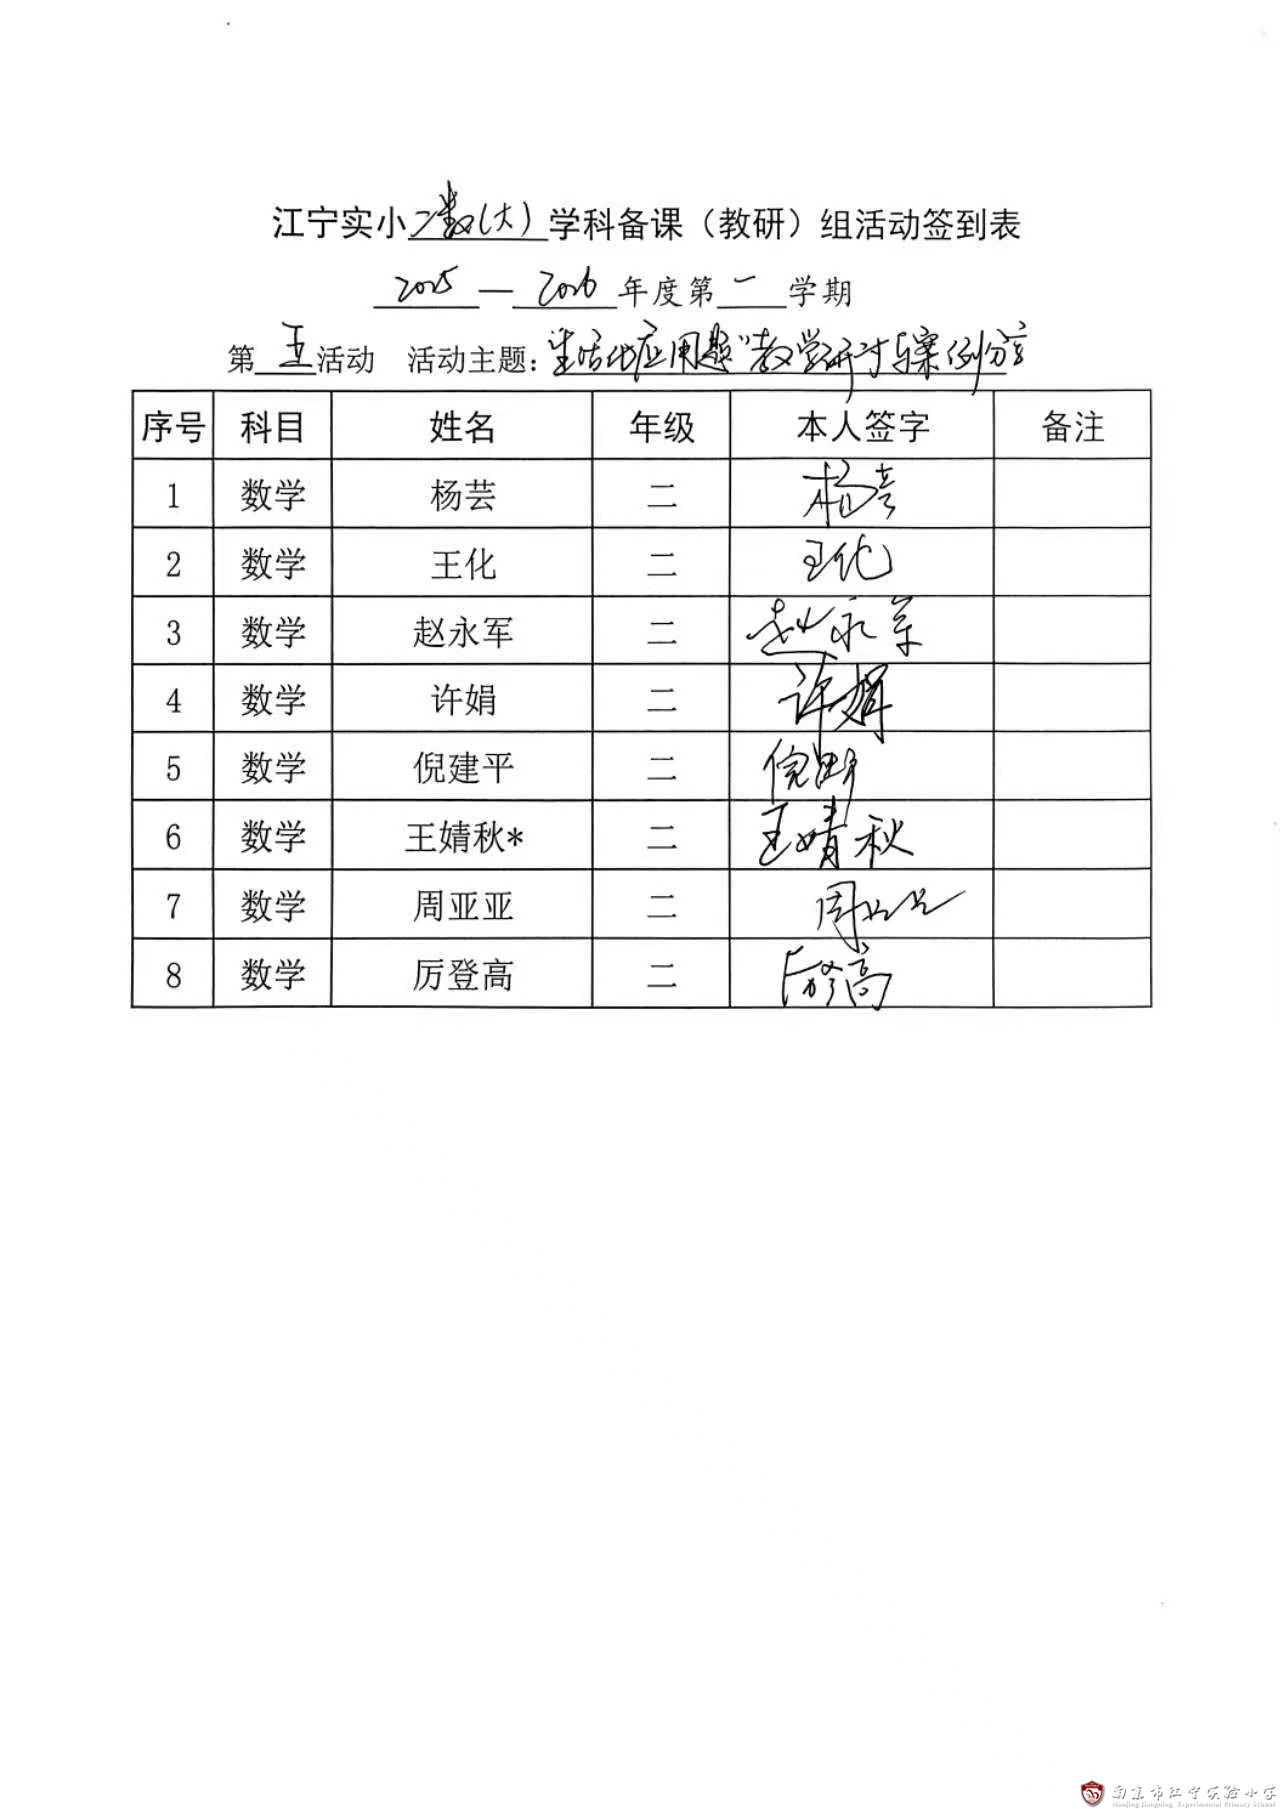 江宁实小二数(大)学科备课（教研）组活动签到表
2025—2026年度第一学期
第五活动 活动主题：“生活化应用题”教学研讨与案例分享
序号 科目 姓名 年级 本人签字 备注
1 数学 杨芸 二 杨芸
2 数学 王化 二 王化
3 数学 赵永军 二 赵永军
4 数学 许娟 二 许娟
5 数学 倪建平 二 倪建平
6 数学 王婧秋* 二 王婧秋
7 数学 周亚亚 二 周亚亚
8 数学 厉登高 二 厉登高
南京市江宁实验小学
Nanjing Jiangning Experimental Primary School